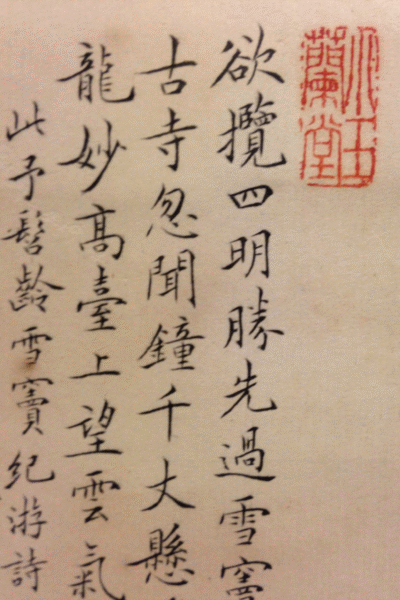 小玉蘭堂
欲攬四明勝先過雪竇
古寺忽聞鐘千丈懸
龍妙高臺上望雲氣
此予髫齡雪竇紀游詩